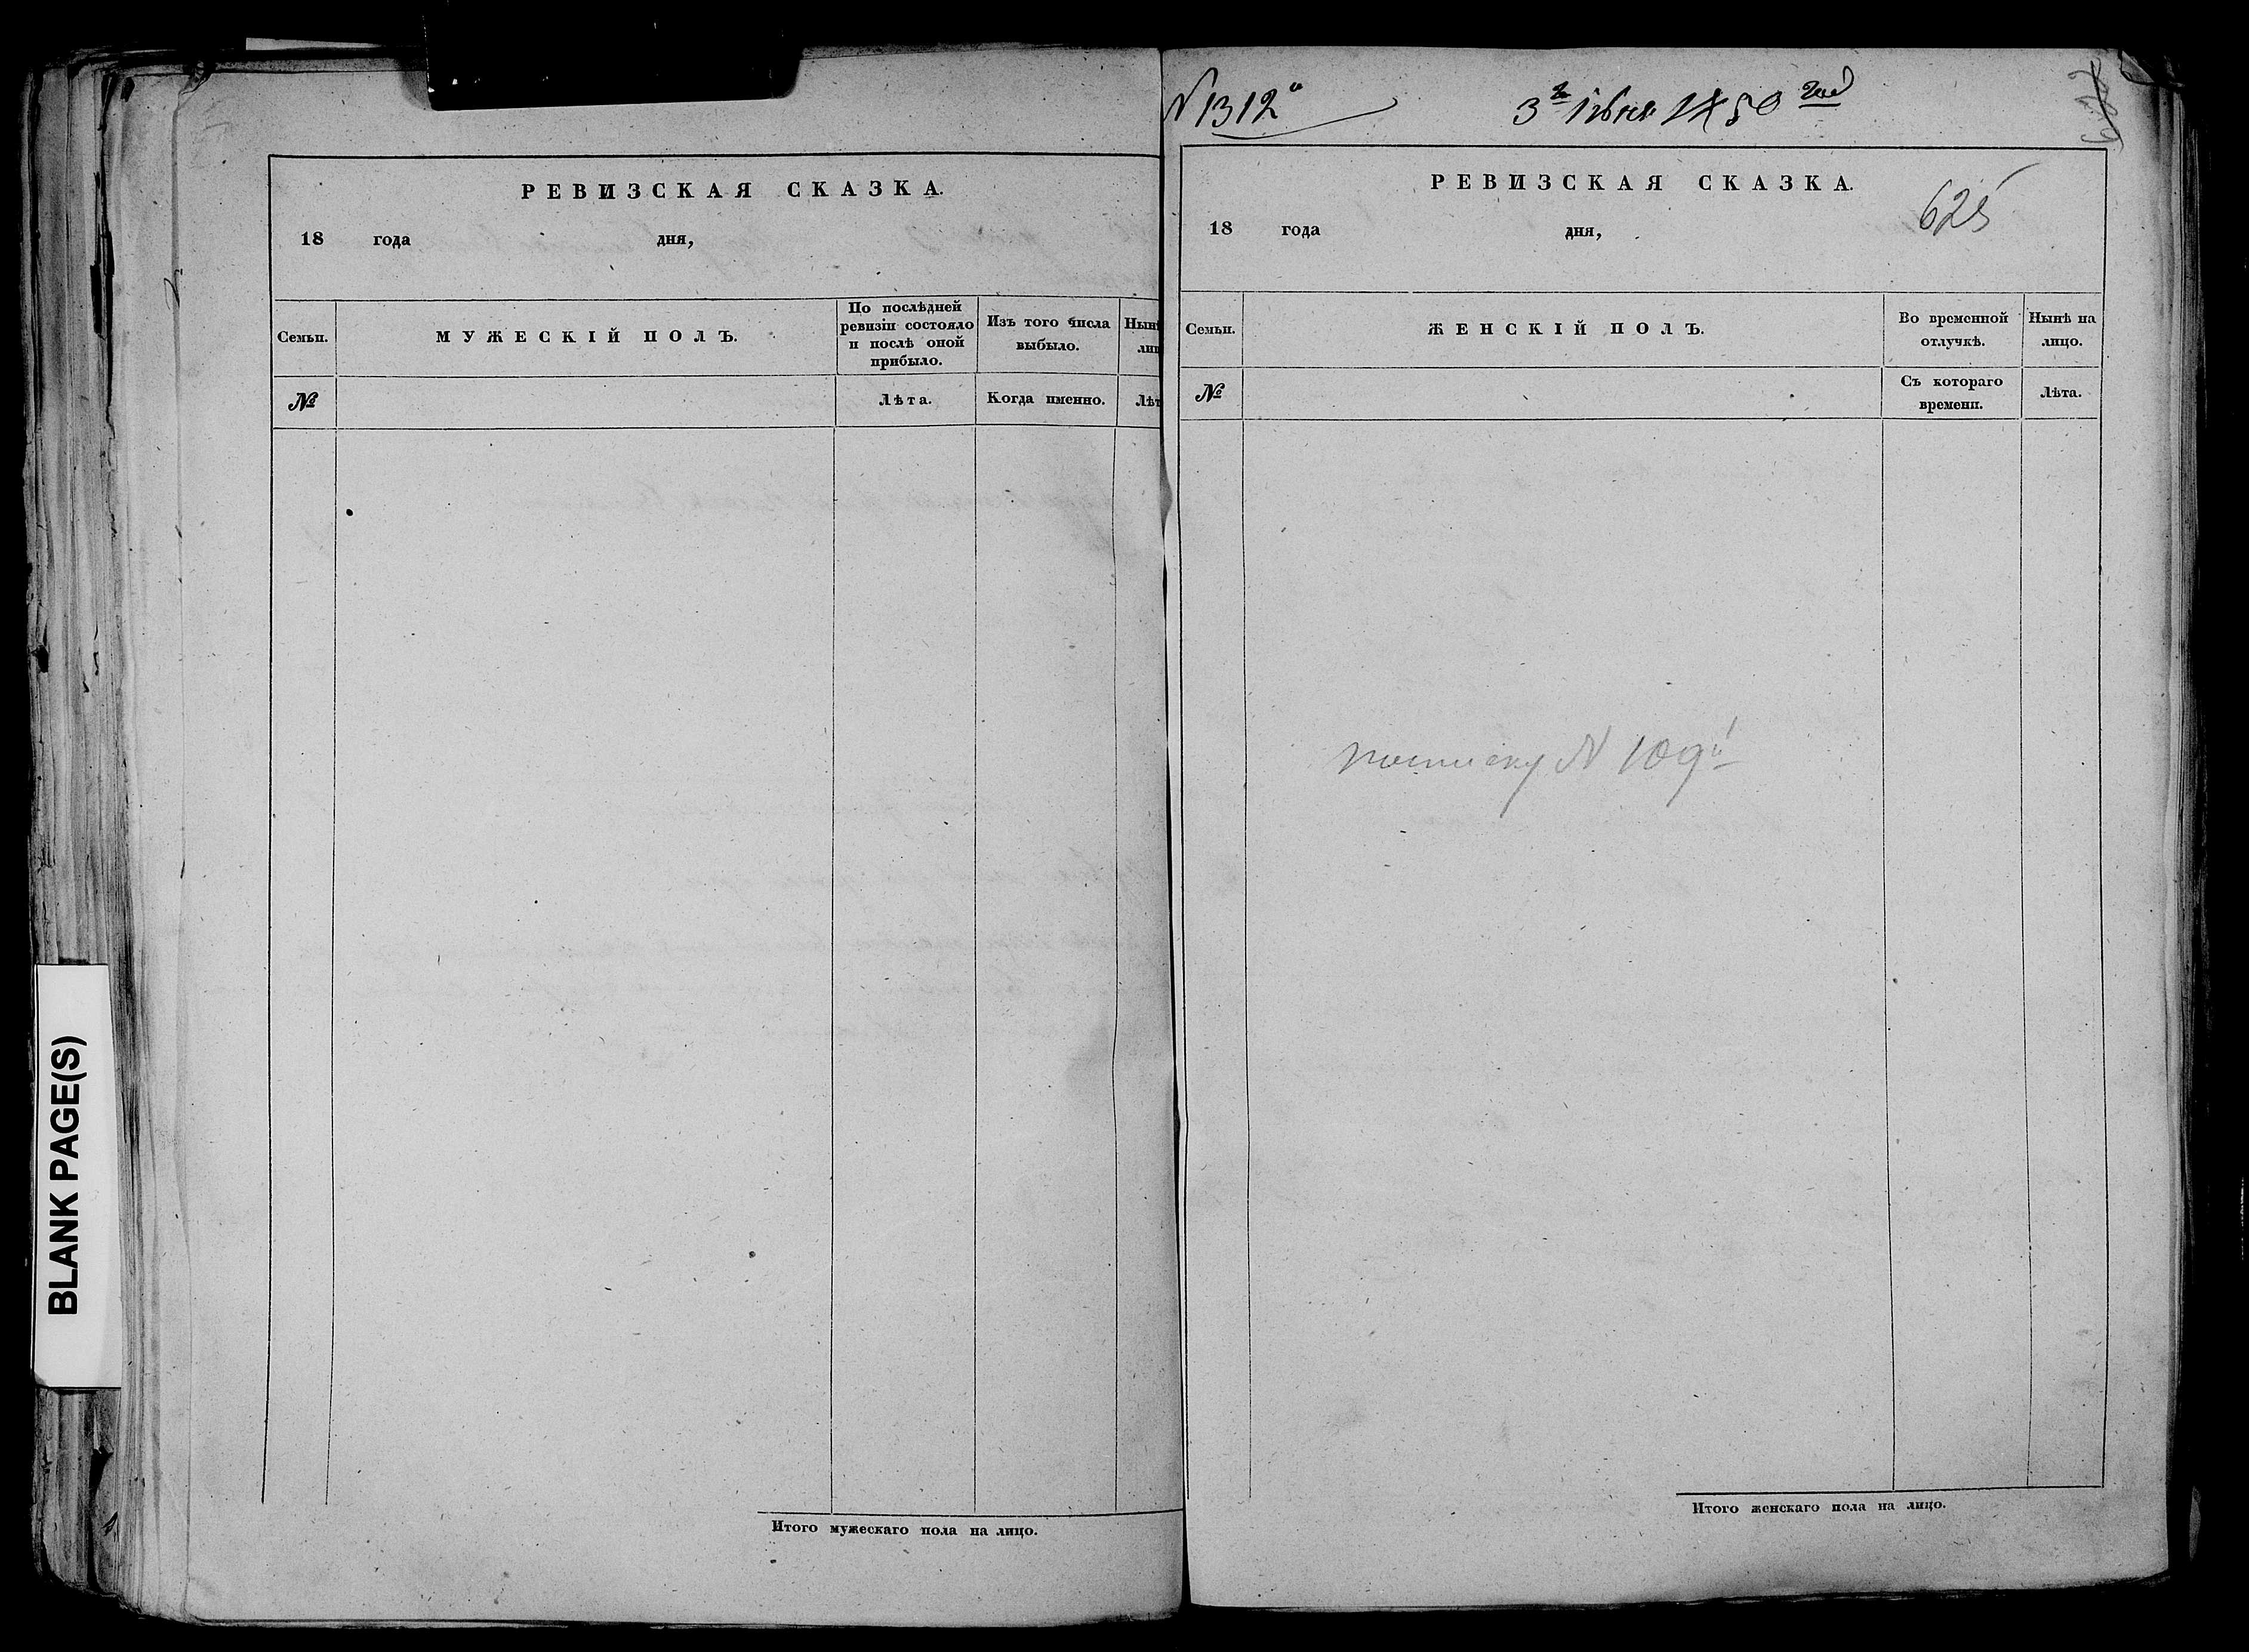 РЕВИЗСКАЯ СКАЗКА.
18 года дня,
Семьи.
МУЖЕСКІЙ ПОЛЪ.
По послѣдней
ревизіи состояло
и послѣ оной
прибыло.
Изъ того числа
выбыло.
№
Лѣта.
Когда именно.
Итого мужескаго пола на лицо.
BLANK PAGE(S)
N 1312
1850
РЕВИЗСКАЯ СКАЗКА.
625
18 года дня,
Семьи.
ЖЕНСКІЙ ПОЛЪ.
Во временной
отлучкѣ.
Нынѣ на
лицо.
№
Съ котораго
времени.
Лѣта.
N 109
Итого женскаго пола на лицо.